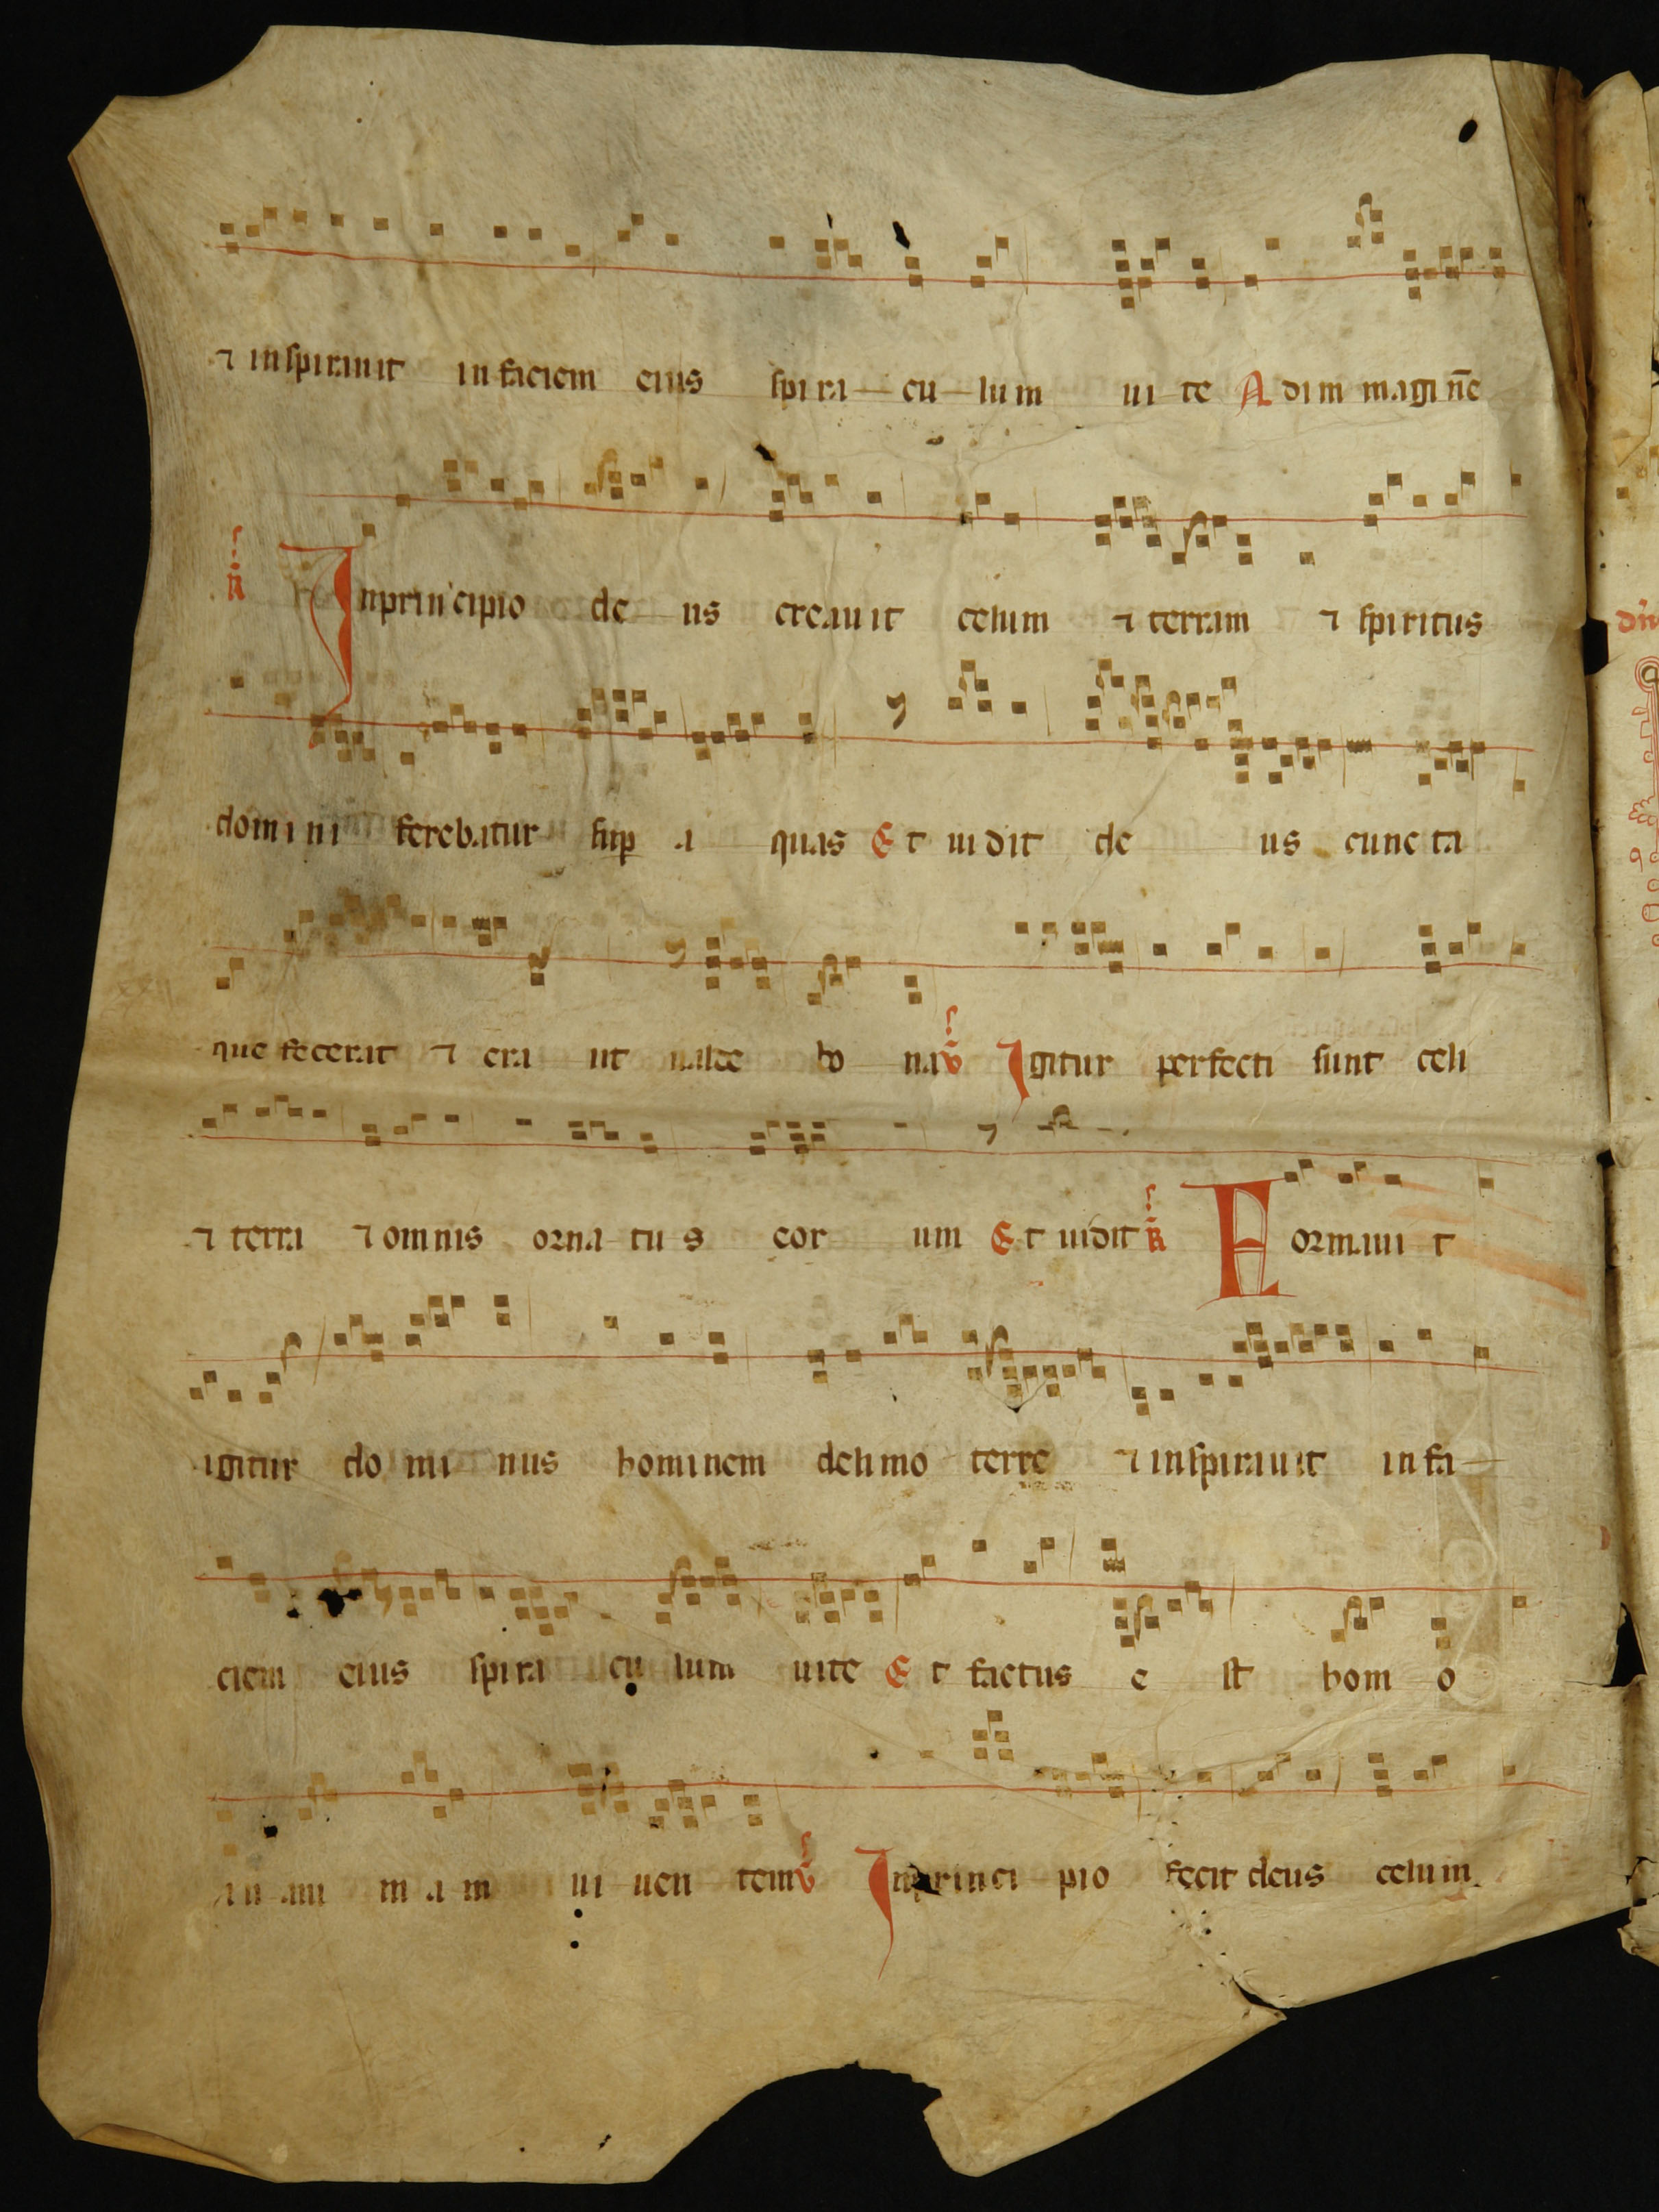 ⁊ inspirauit in faciem eius spira culum uite Ad im magin̄e
R̃ Inprincipio deus creauit celum ⁊ terram ⁊ spiritus
domini ferebatur suꝑ aquas Et uidit deus cuncta
que fecerat ⁊ erant ualde bona v̄ Igitur perfecti sunt celi
⁊ terra ⁊ omnis ornatus eorum Et uidit R̃ Formauit
igitur dominus hominem de limo terre ⁊ inspirauit in fa
ciem eius spiraculum uite Et factus est homo
in animam uiuentem v̄ Inprincipio fecit deus celum